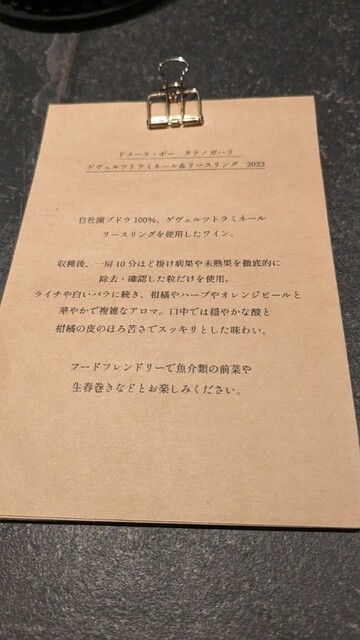 ドメース・ポー　タテノガハラ
ゲヴェルツトラミネール&リースリング　2023
自社園ブドウ100%、ゲヴェルツトラミネール
リースリングを使用したワイン。
収穫後、一房10分ほど掛け病果や未熟果を徹底的に
除去・確認した粒だけを使用。
ライチや白いバラに続き、柑橘やハーブやオレンジピールと
華やかで複雑なアロマ。口中では穏やかな酸と
柑橘の皮のほろ苦さでスッキリとした味わい。
フードフレンドリーで魚介類の前菜や
生春巻きなどとお楽しみください。